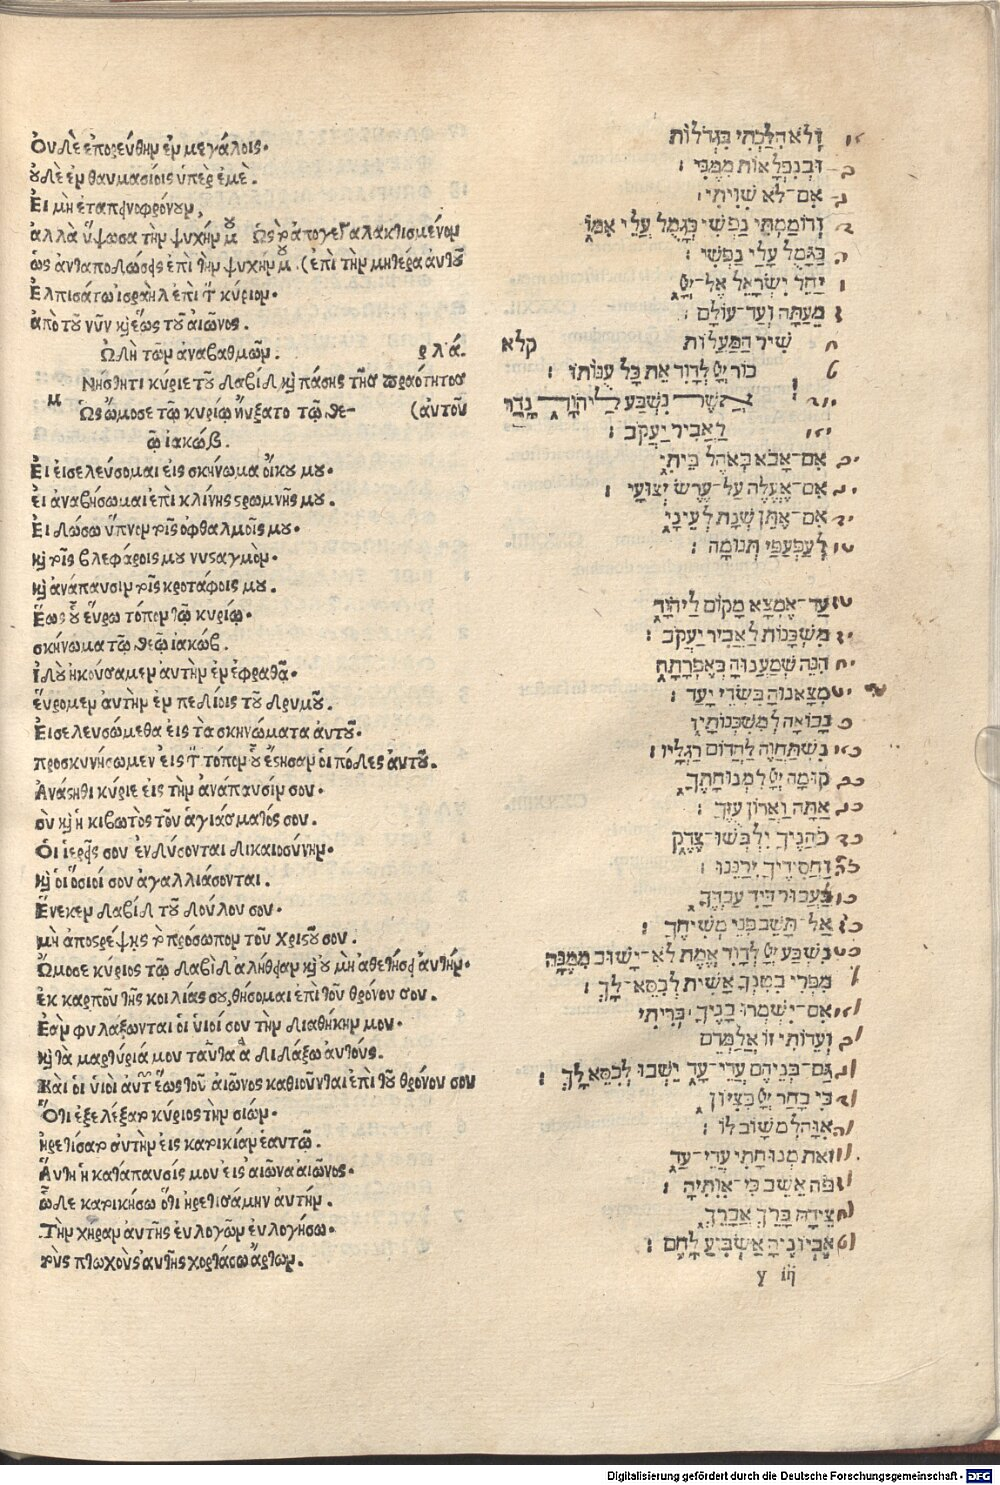 Οὐδὲ ἐπορεύθην ἐν μεγάλοις.
οὐδὲ ἐν θαυμασίοις ὑπὲρ ἐμὲ.
Εἰ μὴ ἐταπεινοφρόνουν,
ἀλλὰ ὕψωσα τὴν ψυχήν μου Ὡς τὸ ἀπογεγαλακτισμένον
ὡς ἀνταποδώσεις ἐπὶ τὴν ψυχήν μου. (ἐπὶ τὴν μητέρα ἀυτοῦ
Ἐλπισάτω ἰσραὴλ ἐπὶ τὸν κύριον.
ἀπὸ τοῦ νῦν καὶ ἕως τοῦ αἰῶνος.
Ὠδὴ τῶν αναβαθμῶν. ρλά.
Μνήσθητι κύριε τοῦ δαβὶδ καὶ πάσης τῆς πραότητος
Ὡς ὤμοσε τῷ κυρίῳ ἠυξατο τῷ θε- (ἀυτοῦ
ῷ ἰακώβ.
Εἰ εἰσελεύσομαι εἰς σκήνωμα ὄικου μου.
εἰ ἀναβήσωμαι ἐπὶ κλίνης στρωμνῆς μου.
Εἰ δώσω ὕπνον τοῖς ὀφθαλμοῖς μου.
καὶ τοῖς βλεφάροις μου νυσταγμὸν.
καὶ ἀνάπαυσιν τοῖς κροτάφοις μου.
Ἕως οὗ ἕυρω τόπον τῷ κυρίῳ.
σκήνωμα τῷ θεῷ ἰακώβ.
Ἰδοὺ ἠκούσαμεν ἀυτὴν ἐν ἐφραθᾶ.
ἕυρομεν ἀυτὴν ἐν πεδίοις τοῦ δρυμοῦ.
Εἰσελευσώμεθα εἰς τὰ σκηνώματα ἀυτοῦ.
προσκυνήσωμεν εἰς τὸν τόπον οὗ ἔστησαν οἱ πόδες ἀυτοῦ.
Ἀνάστηθι κύριε εἰς τὴν ἀνάπαυσίν σου.
σὺ καὶ ἡ κιβωτὸς τοῦ ἁγιάσματός σου.
Οἱ ἱερεῖς σου ἐνδύσονται δικαιοσύνην.
καὶ οἱ ὅσιοί σου ἀγαλλιάσονται.
Ἕνεκεν δαβὶδ τοῦ δούλου σου.
μὴ ἀποστρέψῃς τὸ πρόσωπον τοῦ χριστοῦ σου.
Ὤμοσε κύριος τῷ δαβὶδ ἀλήθειαν καὶ οὐ μὴ ἀθετήσει ἀυτήν.
ἐκ καρποῦ τῆς κοιλίας σου, θήσομαι ἐπὶ τοῦ θρόνου σου.
Ἐὰν φυλάξωνται οἱ ὑιοί σου τὴν διαθήκην μου.
καὶ τὰ μαρτύριά μου ταῦτα ἃ διδάξω ἀυτούς.
Καὶ οἱ ὑιοὶ ἀυτῶν ἕως τοῦ αἰῶνος καθιοῦνται ἐπὶ τοῦ θρόνου σου
Ὅτι ἐξελέξατο κύριος τὴν σιών.
ἡρετίσατο ἀυτὴν εἰς κατοικίαν ἑαυτῷ.
Ἅυτη ἡ κατάπαυσίς μου εἰς αἰῶνα αἰῶνος.
ὧδε κατοικήσω ὅτι ἡρετισάμην ἀυτήν.
Τὴν χήραν ἀυτῆς ἐυλογῶν ἐυλογήσω.
τοὺς πτωχοὺς ἀυτῆς χορτάσω ἄρτων.
וְלֹא הִלַּכְתִּי בִּגְדֹלוֹת
וּבְנִפְלָאוֹת מִמֶּנִּי :
אִם־לֹא שִׁוִּיתִי
וְדוֹמַמְתִּי נַפְשִׁי כְּגָמֻל עֲלֵי אִמּוֹ
כַּגָּמֻל עָלַי נַפְשִׁי :
יַחֵל יִשְׂרָאֵל אֶל־יְיָ
מֵעַתָּה וְעַד־עוֹלָם :
שִׁיר הַמַּעֲלוֹת קלא
זְכוֹר יְיָ לְדָוִד אֵת כָּל עֻנּוֹתוֹ :
אֲשֶׁר נִשְׁבַּע לַיהוָה נָדַר
לַאֲבִיר יַעֲקֹב :
אִם־אָבֹא בְּאֹהֶל בֵּיתִי
אִם־אֶעֱלֶה עַל־עֶרֶשׂ יְצוּעָי :
אִם־אֶתֵּן שְׁנַת לְעֵינָי
לְעַפְעַפַּי תְּנוּמָה :
עַד־אֶמְצָא מָקוֹם לַיהוָה
מִשְׁכָּנוֹת לַאֲבִיר יַעֲקֹב :
הִנֵּה שְׁמַעֲנוּהָ בְאֶפְרָתָה
מְצָאנוּהָ בִּשְׂדֵי יָעַר :
נָבוֹאָה לְמִשְׁכְּנוֹתָיו
נִשְׁתַּחֲוֶה לַהֲדֹם רַגְלָיו :
קוּמָה יְיָ לִמְנוּחָתֶךָ
אַתָּה וַאֲרוֹן עֻזֶּךָ :
כֹּהֲנֶיךָ יִלְבְּשׁוּ־צֶדֶק
וַחֲסִידֶיךָ יְרַנֵּנוּ :
בַּעֲבוּר דָּוִד עַבְדֶּךָ
אַל־תָּשֵׁב פְּנֵי מְשִׁיחֶךָ :
נִשְׁבַּע יְיָ לְדָוִד אֱמֶת לֹא־יָשׁוּב מִמֶּנָּה
מִפְּרִי בִטְנְךָ אָשִׁית לְכִסֵּא־לָךְ :
אִם־יִשְׁמְרוּ בָנֶיךָ בְּרִיתִי
וְעֵדֹתִי זוֹ אֲלַמְּדֵם
גַּם־בְּנֵיהֶם עֲדֵי־עַד יֵשְׁבוּ לְכִסֵּא לָךְ :
כִּי בָחַר יְיָ בְּצִיּוֹן
אִוָּהּ לְמוֹשָׁב לוֹ :
זֹאת מְנוּחָתִי עֲדֵי־עַד
פֹּה אֵשֵׁב כִּי־אִוִּתִיהָ :
צֵידָהּ בָּרֵךְ אֲבָרֵךְ
אֶבְיוֹנֶיהָ אַשְׂבִּיעַ לָחֶם :
y iij
Digitalisierung gefördert durch die Deutsche Forschungsgemeinschaft - DFG